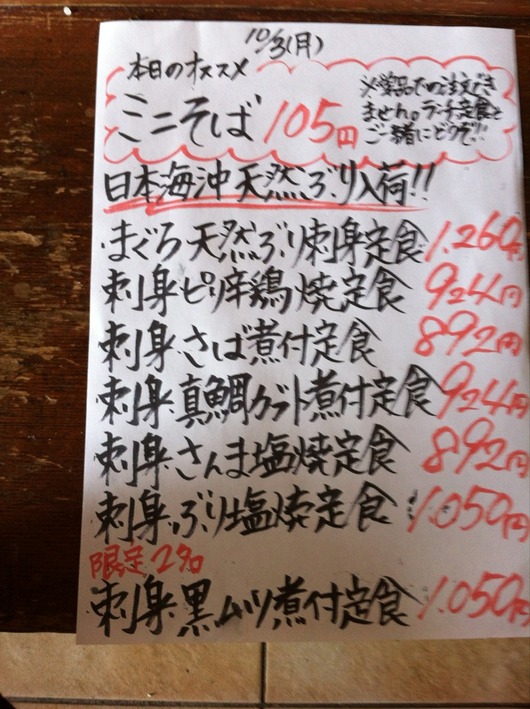 10/3(月)
本日のオススメ
ミニそば 105円
※単品での注文でき
ません。ランチ定食と
ご一緒にどうぞ!!
日本海沖天然ぶり入荷!!
まぐろ・天然ぶり刺身定食 1.260円
刺身・ピリ辛鶏焼定食 924円
刺身・さば煮付定食 892円
刺身・真鯛カブト煮付定食 924円
刺身・さんま塩焼定食 892円
刺身・ぶり塩焼定食 1.050円
限定2名
刺身・黒ムツ煮付定食 1.050円